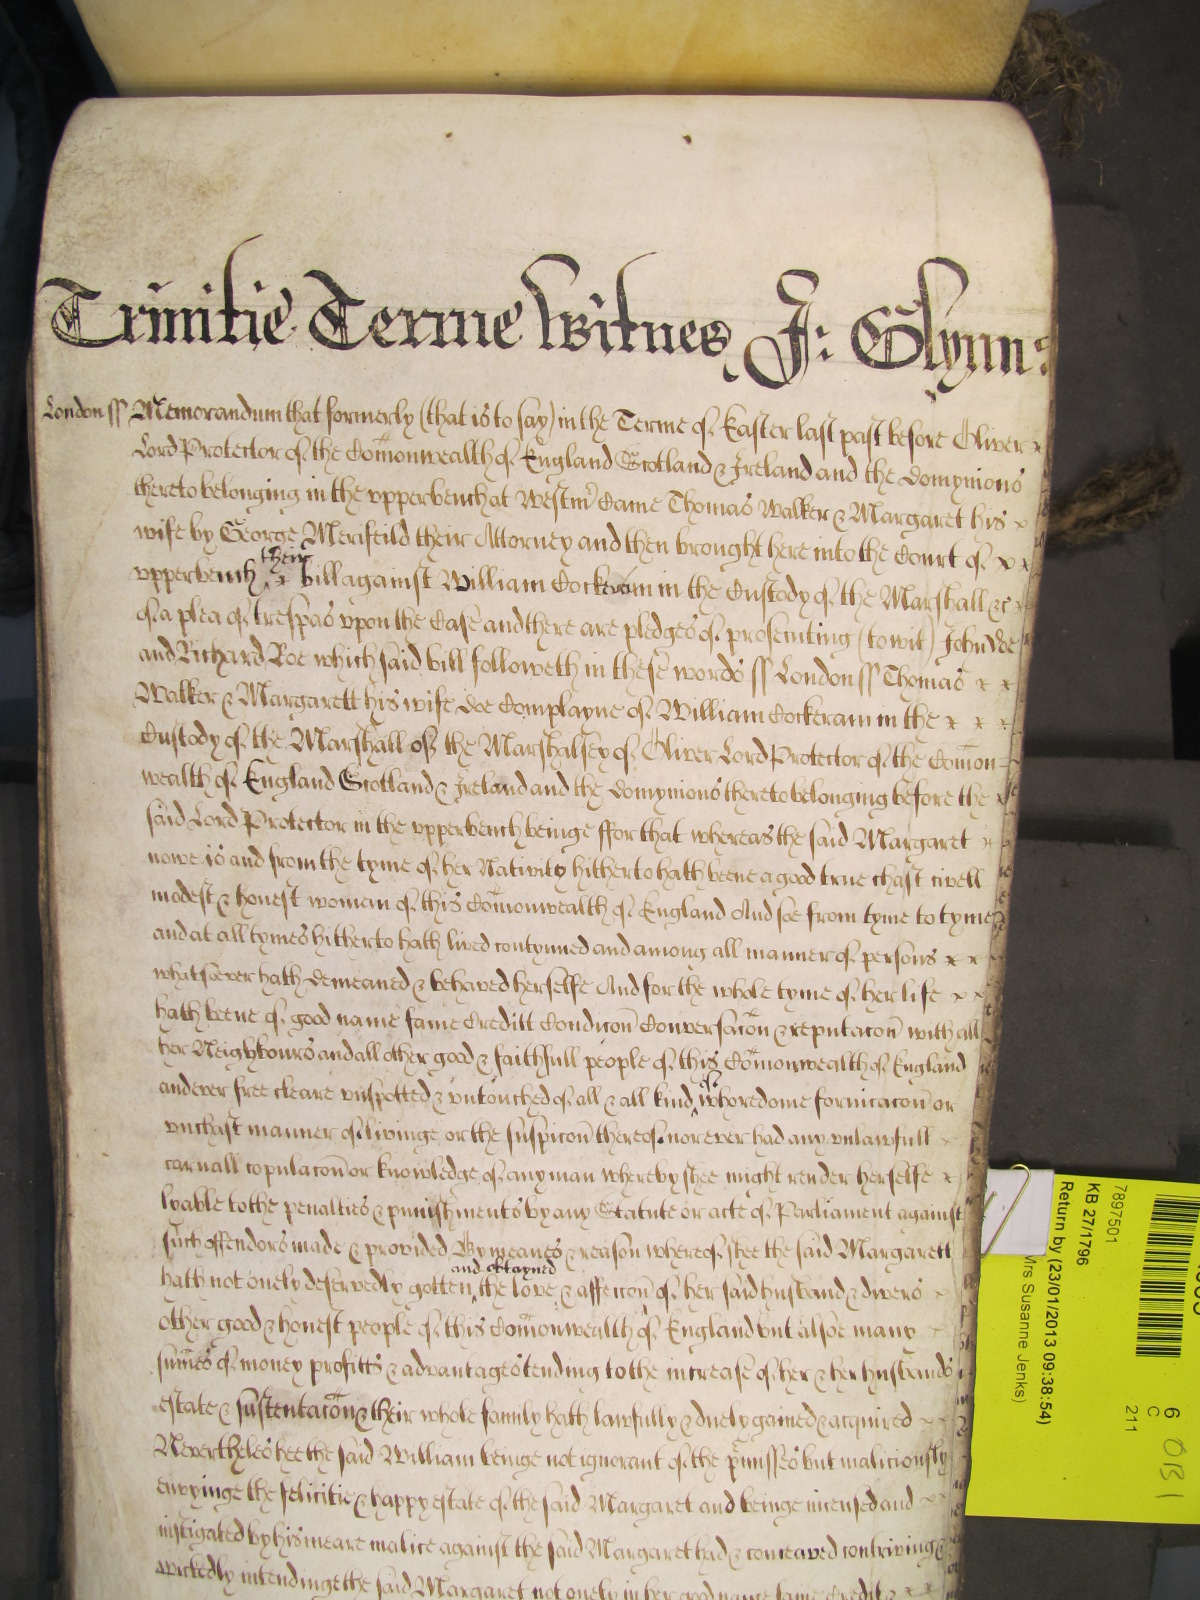 Trinitie Terme Witnes J: Glynn:
London ss Memorandum that formerly (that is to say) in the Terme of Easter last past before Oliver x
Lord Protector of the Com̄onwealth of England Scotland & Ireland and the Domynions
thereto belonging in the vpperbench at Westm̄ Came Thomas Walker & Margaret his x
wife by George Merifeild their Attorney and then brought here into the Court of x x
vpperbench their bill against William Cockeram in the Custody of the Marshall &c x
of a plea of trespas vpon the Case and there are pledges of prosecuting (to wit) John Doe
and Richard Roe which said bill followeth in these words ss London ss Thomas x x
Walker & Margarett his wife doe Complayne of William Cockeram in the x x x
Custody of the Marshall of the Marshalsey of Oliver Lord Protector of the Com̄on=
wealth of England Scotland & Ireland and the Domynions thereto belonging before the x
said Lord Protector in the vpperbench beinge ffor that whereas the said Margaret x
nowe is and from the tyme of her Nativity hitherto hath beene a good true chast civell
modest & honest woman of this Com̄onwealth of England And soe from tyme to tyme
and at all tymes hitherto hath lived contynued and among all manner of persons x x
whatsoever hath demeaned & behaved herselfe And for the whole tyme of her life x x
hath beene of good name fame Creditt Condicōn Conversacōn & reputacōn with all
her Neighbours and all other good & faithfull people of this Com̄onwealth of England
and ever free cleare vnspotted & vntouched of all & all kind of whoredome fornicacōn or
vnchast manner of livinge or the suspicōn thereof nor ever had any vnlawfull x
carnall copulacōn or knowledge of any man whereby shee might render herselfe x
lyable to the penalties & punishments by any Statute or acte of Parliament against
such offendors made & provided By meanes & reason whereof shee the said Margarett
hath not onely deservedly gotten and obtayned the love & affeccōn of her said husband & divers x
other good & honest people of this Com̄onwealth of England but alsoe many x
sum̄es of money profitts & advantages tending to the increase of her & her husbands
estate & sustentacōn & their whole family hath lawfully & duely gained & acquired x x
Nevertheles hee the said William beinge not ignorant of the p̄misses but maliciously
envyinge the felicitie & happy estate of the said Margaret and beinge incensed and x x
instigated by his meare malice against the said Margaret had & conceaved contriving &
wickedly intendinge the said Margaret not onely in her good name fame Creditt x x
7897501
KB 27/1796
Return by (23/01/2013 09:38:54)
Mrs Susanne Jenks)
6
C
211